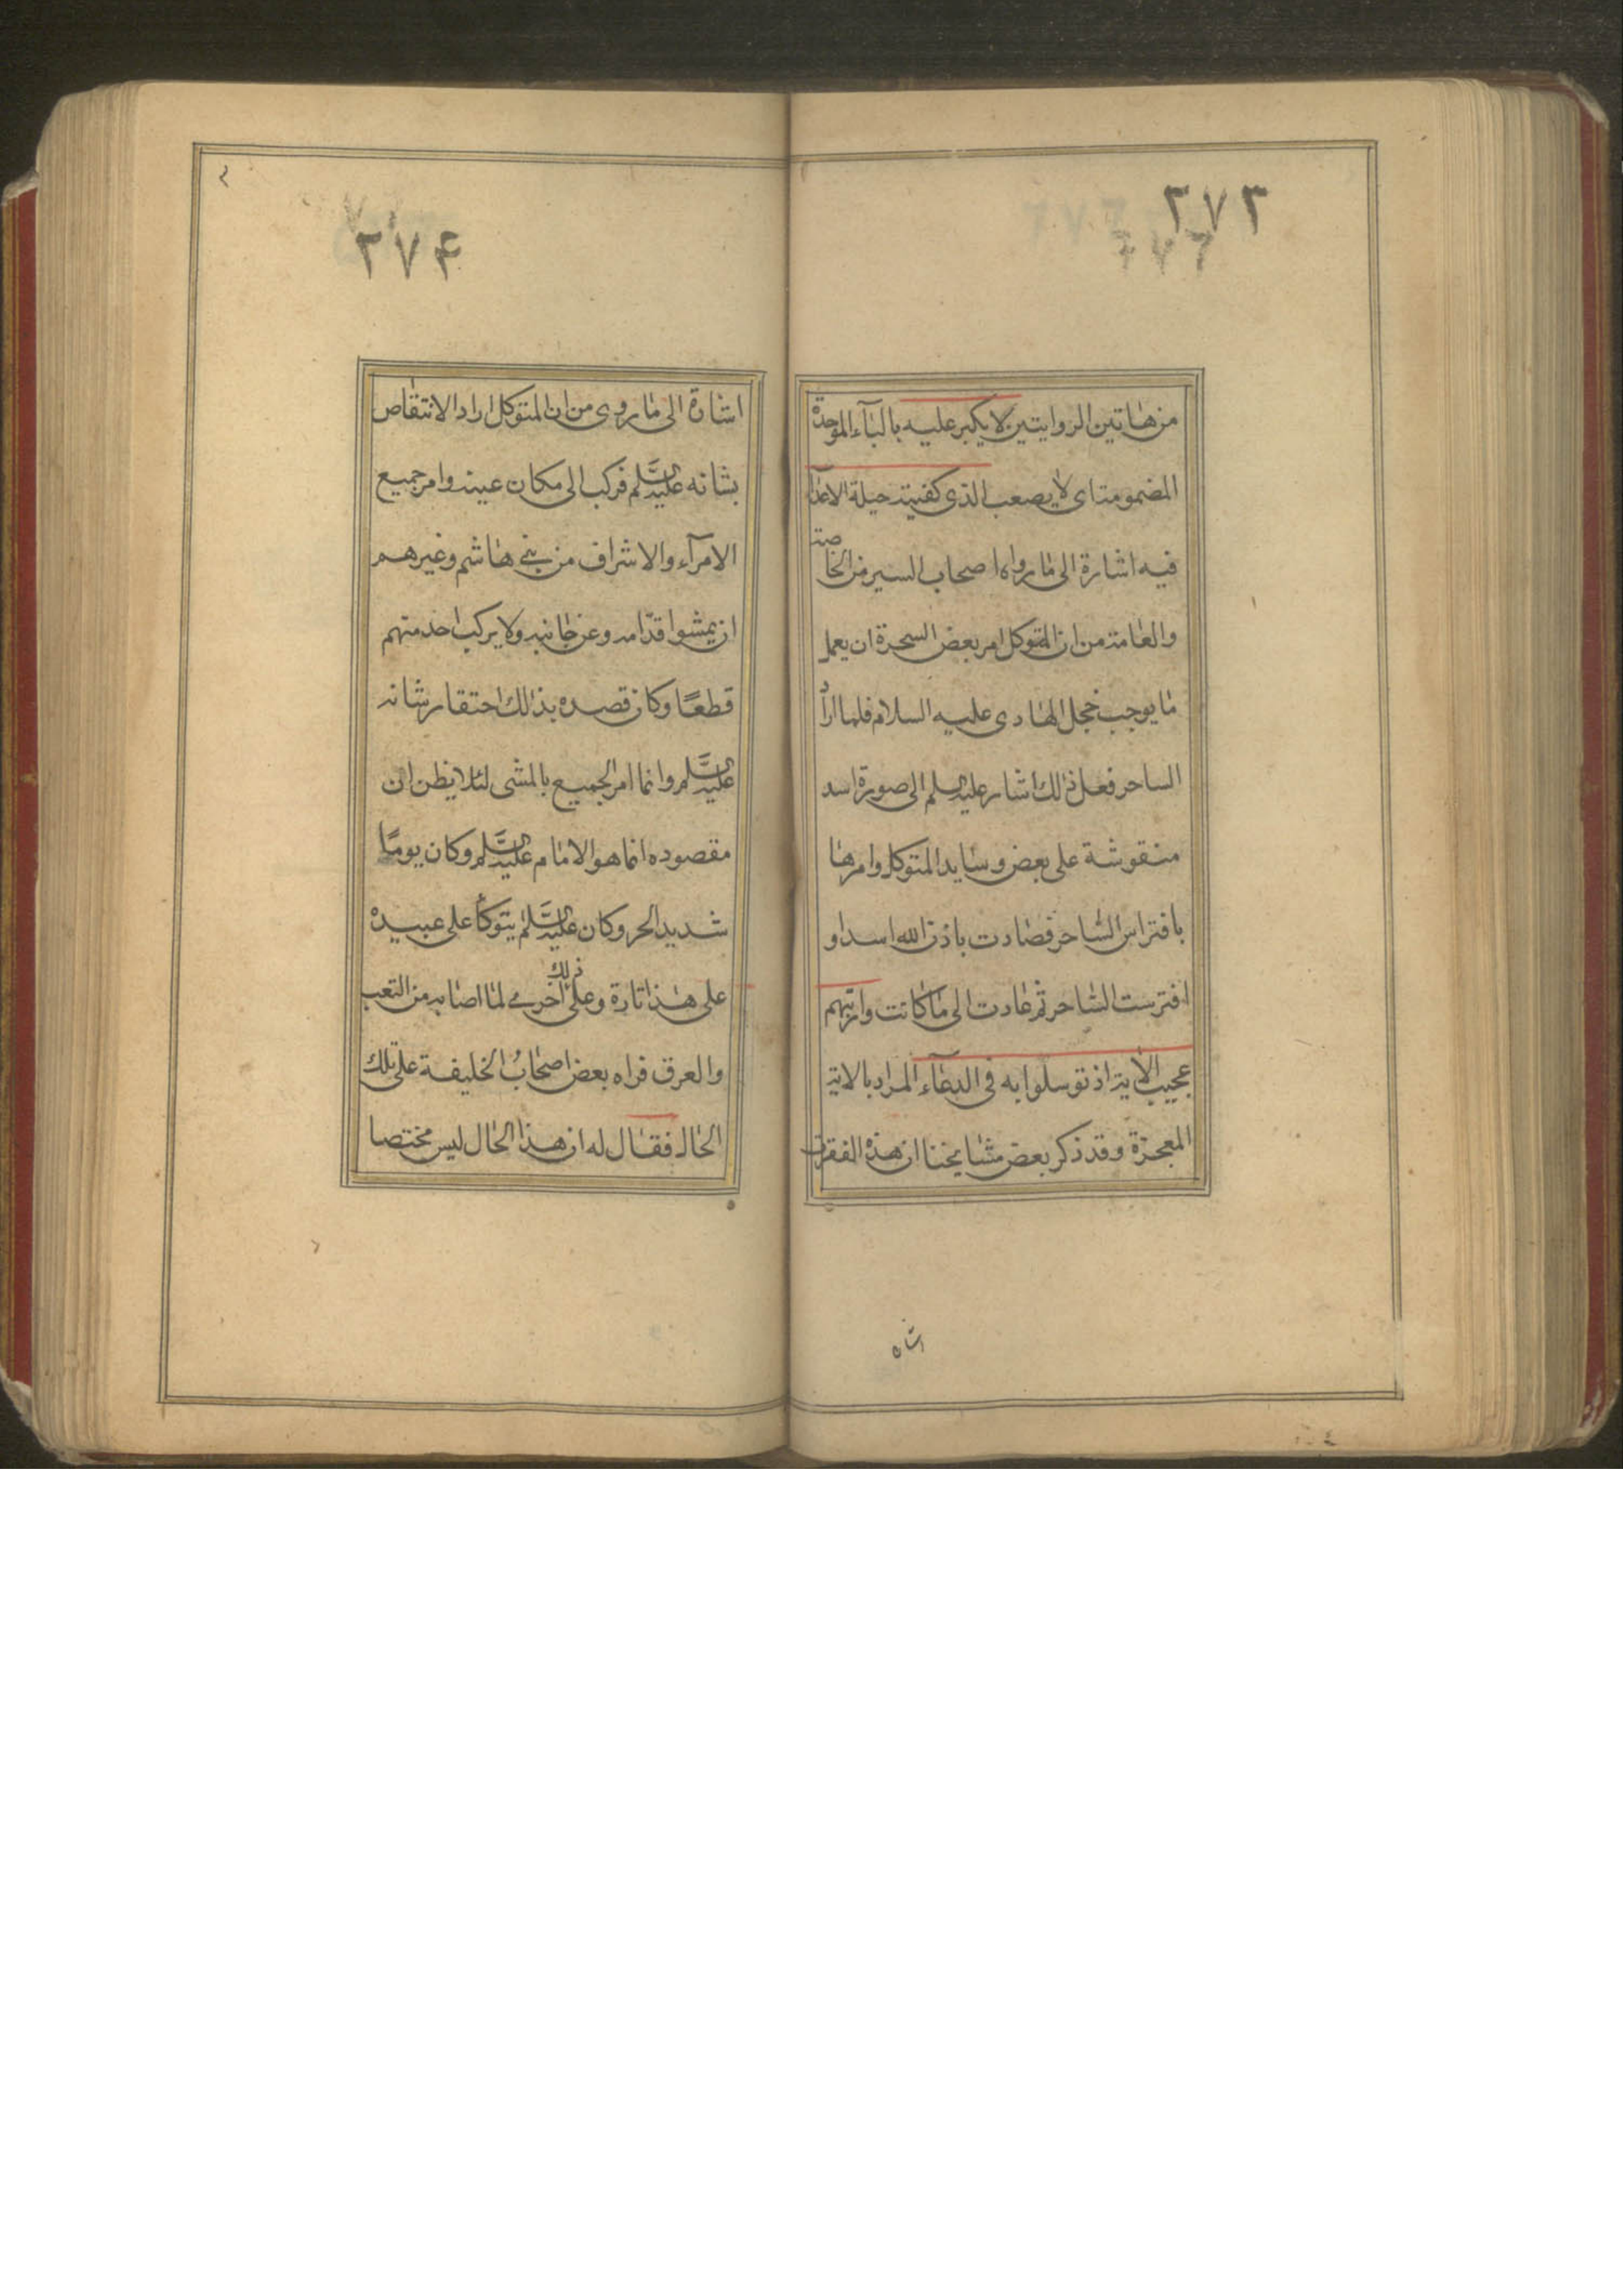 ٢٧٣
من هاتين الروايتين لا يكبر عليه بالبآء الموحدة
المضمومة اى لا يصعب الذى كفيته حيلة الاعدآء
فيه اشارة الى ما رواه اصحاب السير من الخاصة
والعامة من ان المتوكل امر بعض السحرة ان يعمل
ما يوجب خجل الهادى عليه السلام فلما اراد
الساحر فعل ذالك اشار عليه السلم الى صورة اسد
منقوشة على بعض وسايد المتوكل وامرها
بافتراس الساحر فصادت باذن الله اسدا و
افترست الساحر ثم عادت الى ما كانت وارتهم
عجيب الاية اذ توسلوا به فى الدعآء المراد بالاية
المعجزة وقد ذكر بعض مشايخنا ان هذه الفقرة
اشاه
٢٧۴
اشارة الى ما روى من ان المتوكل اراد الانتقاص
بشانه عليه السلم فركب الى مكان عينه وامر جميع
الامرآء والاشراف من بنى هاشم وغيرهم
ان يمشوا قدامه وعن جانبه ولا يركب احد منهم
قطعًا وكان قصده بذالك احتقار شانه
عليه السلم وانما امر الجميع بالمشى لئلا يظن ان
مقصوده انما هو الامام عليه السلم وكان يومًا
شديد الحر وكان عليه السلم يتوكأ على عبيده
على هذا تارة وعلى ذلك اخرى لما اصابه من التعب
والعرق فراه بعض اصحاب الخليفة على تلك
الحال فقال له ان هذا الحال ليس مختصا